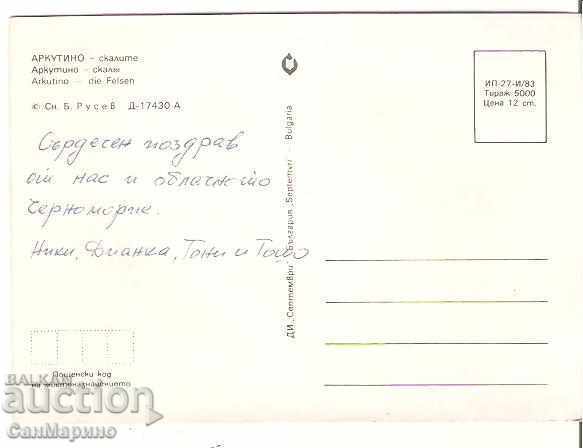 АРКУТИНО – скалите
Аркутино – скалы
Arkutino – die Felsen
© Сн. Б. Русев Д-17430-А
Сърдечен поздрав
от нас и облачното
Черноморие.
Ники, Дианка, Тони и Тошо
ДИ „Септември“ България „Septemvri“ Bulgaria
ИП-27-И/83
Тираж 5000
Цена 12 ст.
Пощенски код
на местоназначението
BALKAN
auction
СанМарино